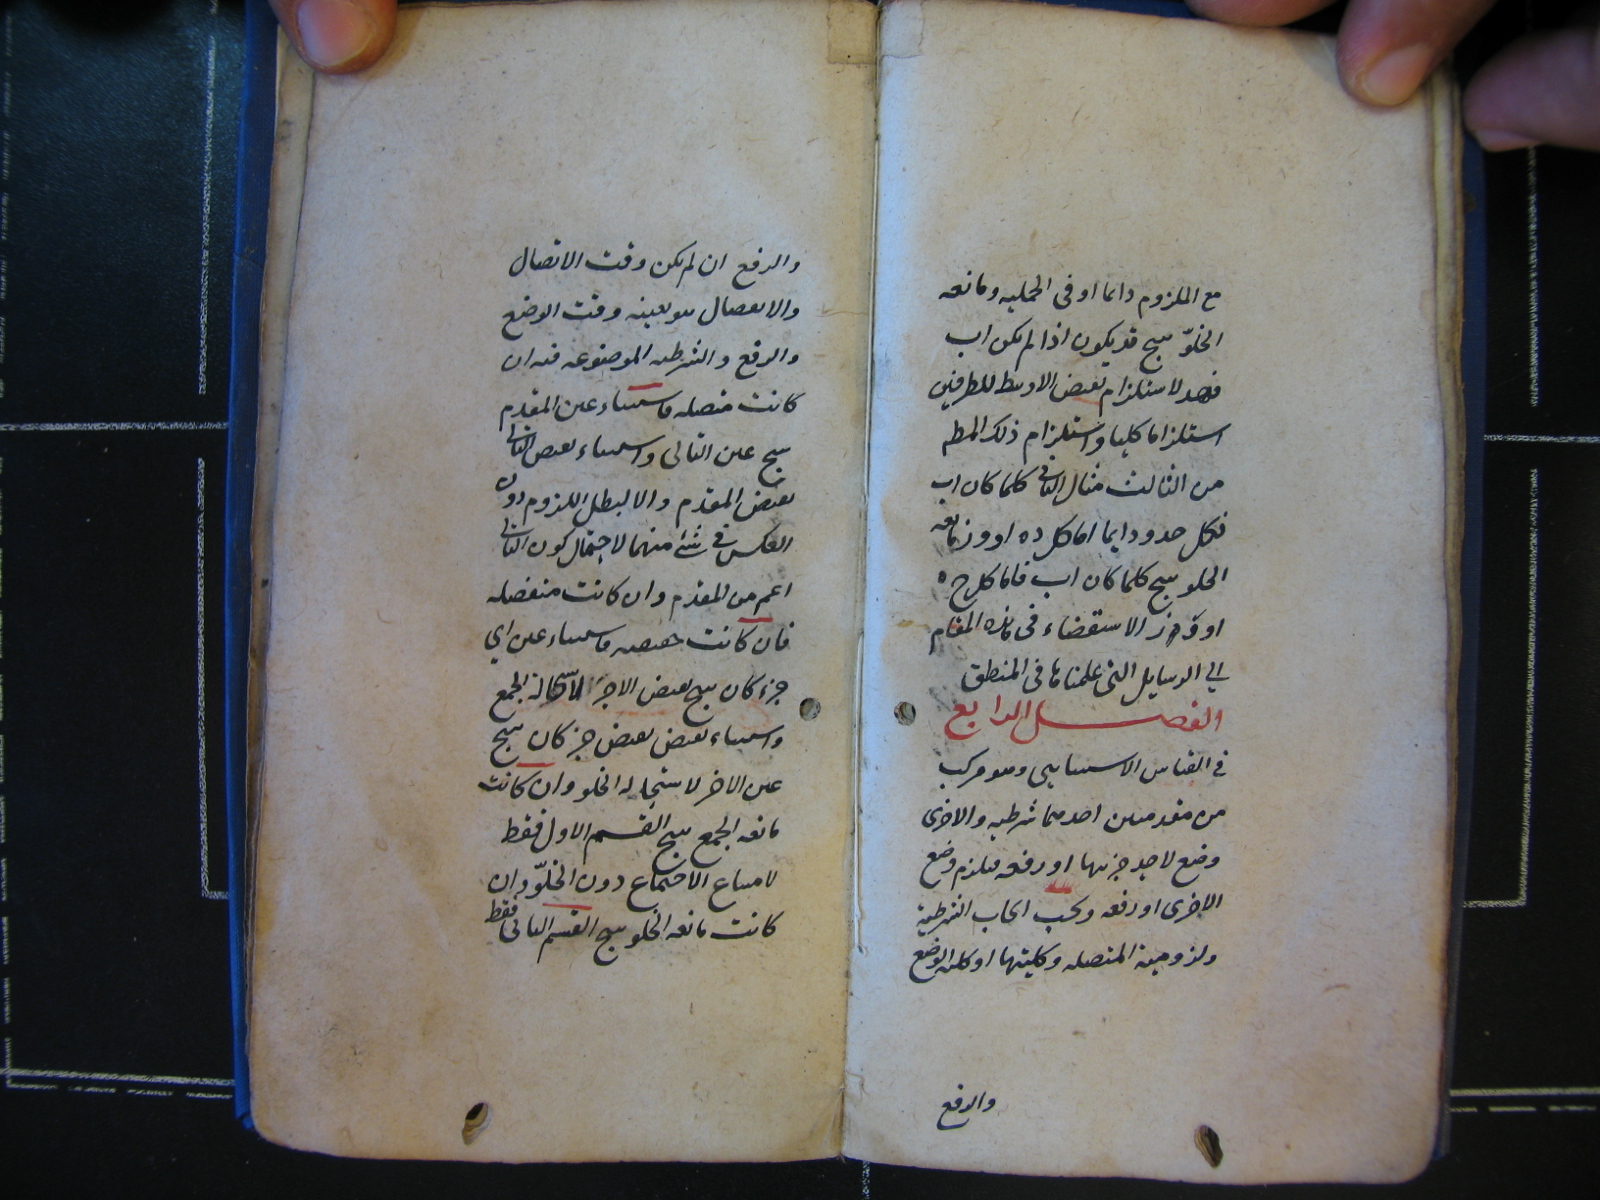 مع الملزوم دايما او فى الحمليه ومانعه
الخلوّ ينتج قد يكون اذا لم يكن اب
فهد لاستلزام نقيض الاوسط للطرفين
استلزاما كليا واستلزام ذلك المط
من الثالث مثال الثانى كلما كان اب
فكل حد ودايما اما كل ده او وز مانعه
الخلو ينتج كلما كان اب فاما كل ج ه
او وز الاستقضاء فى هذه المقام
الى الرسايل التى علمناها فى المنطق
الفصل الرابع
فى القياس الاستثنايى وهو مركب
من مقدمتين احدهما شرطيه والاخرى
وضع لاحد جزئيها او رفعه فيلزم وضع
الاخرى او رفعه ويجب ايجاب الشرطية
ولزومية المتصله وكليتها او كلية الوضع
والرفع
والرفع ان لم يكن وقت الاتصال
والانفصال هو بعينه وقت الوضع
والرفع والشرطيه الموضوعه فيه ان
كانت متصله فاستثناء عين المقدم
ينتج عين التالى واستثناء نقيض التالى
نقيض المقدم والا لبطل اللزوم دون
العكس فى شئ منهما لاحتمال كون التالى
اعم من المقدم وان كانت منفصله
فان كانت حقيقيه فاستثناء عين اي
جزء كان ينتج نقيض الاخر لاستحالة الجمع
واستثناء نقيض نقيض جز كان ينتج
عين الاخر لاستحاله الخلو وان كانت
مانعه الجمع ينتج القسم الاول فقط
لامتناع الاجتماع دون الخلوّ وان
كانت مانعه الخلو ينتج القسم الثانى فقط